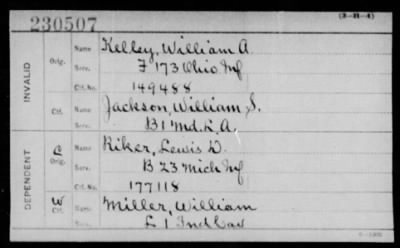 230507
(3-R-4)
INVALID
Orig. Name Kelley, William A.
Serv. F 173 Ohio Inf
Ctf. No. 149488
Ctf. Name Jackson, William S.
Serv. B 1 Md. L. A.
DEPENDENT
C Orig. Name Riker, Lewis D.
Serv. B 23 Mich Inf
Ctf. No. 177118
W Ctf. Name Miller, William
L 1 Ind Cav